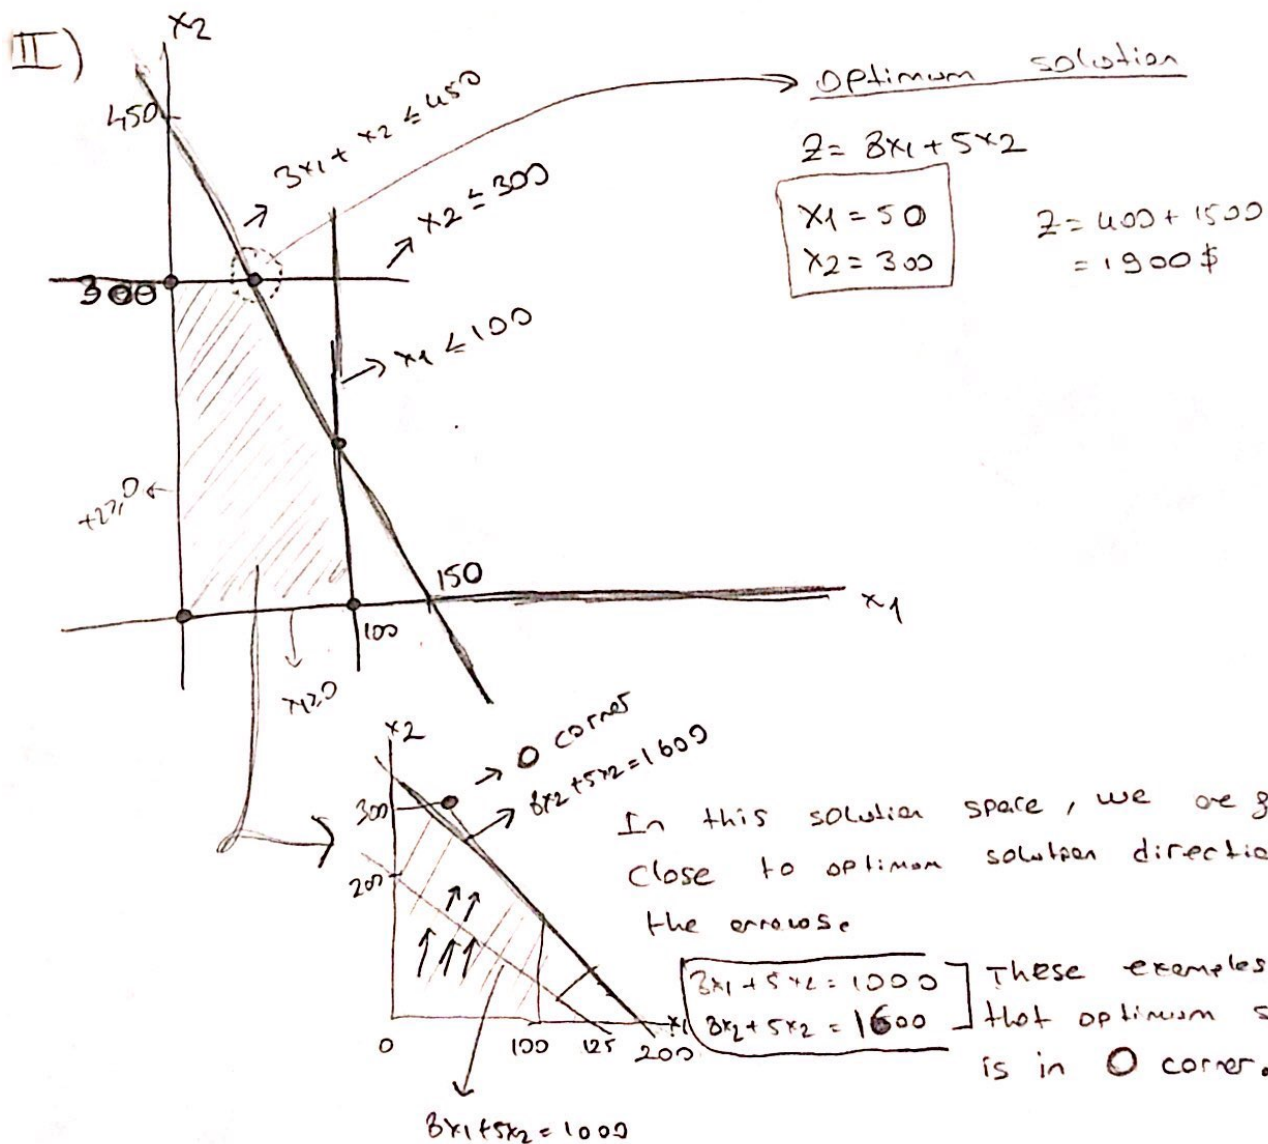 II)
x2
450
3x1 + x2 ≤ 450
x2 ≤ 300
300
x1 ≤ 100
+2≥0
150
x1
100
x1≥0
Optimum solution
Z = 8x1 + 5x2
x1 = 50
x2 = 300
Z = 400 + 1500
= 1900$
x2
→ O corner
8x2 + 5x2 = 1600
300
200
0
100
125
200
x1
8x1 + 5x2 = 1000
In this solution space, we are
close to optimum solution
the
8x1 + 5x2 = 1000
8x2 + 5x2 = 1600
These examples
that optimum
is in O corner.